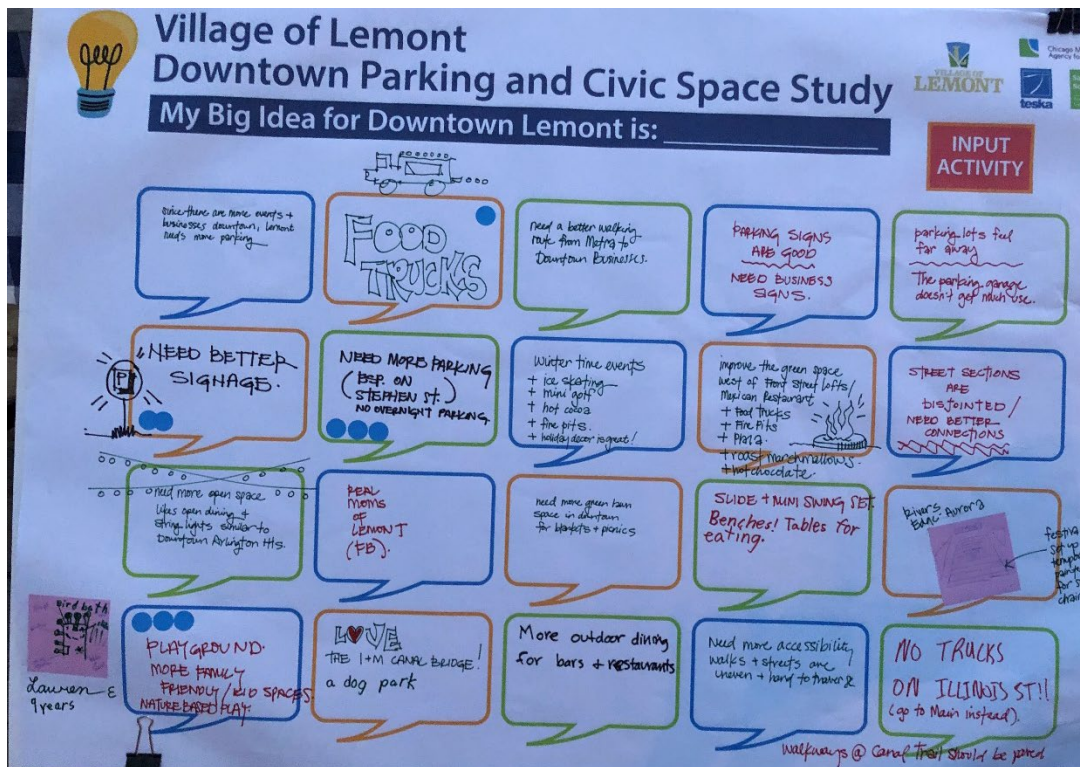 Village of Lemont
Downtown Parking and Civic Space Study
My Big Idea for Downtown Lemont is:
VILLAGE OF
LEMONT
Chicago M
Agency fo
teska
INPUT
ACTIVITY
since there are more events +
businesses downtown, Lemont
needs more parking
FOOD
TRUCKS
need a better walking
route from Metra to
Downtown Businesses.
PARKING SIGNS
ARE GOOD
NEED BUSINESS
SIGNS.
parking lots feel
far away
The parking garage
doesn't get much use.
P
NEED BETTER
SIGNAGE.
NEED MORE PARKING
(ESP. ON
STEPHEN ST.)
NO OVERNIGHT PARKING
Winter time events
+ ice skating
+ mini golf
+ hot cocoa
+ fire pits.
+ holiday decor is great!
improve the green space
west of Front Street Lofts/
Mexican Restaurant
+ Food Trucks
+ Fire Pits
+ Plaza
+ roast marshmallows.
+ hot chocolate
STREET SECTIONS
ARE
DISJOINTED/
NEED BETTER
CONNECTIONS
need more open space
likes open dining +
string lights similar to
Downtown Arlington Hts.
REAL
MOMS
OF
LEMONT
(FB).
need more green lawn
space in downtown
for blankets + picnics
SLIDE + MINI SWING SET.
Benches! Tables for
eating.
Rivers
Edge Aurora
festiva
set up
tempo
for s
chair
Bird bath
Lauren E
9 years
PLAYGROUND.
MORE FAMILY
FRIENDLY/KID SPACES.
NATURE BASED PLAY
LOVE
THE I+M CANAL BRIDGE!
a dog park
More outdoor dining
for bars + restaurants
Need more accessibility
walks + streets are
uneven + hard to traverse
NO TRUCKS
ON ILLINOIS ST!!
(go to Main instead).
Walkways @ Canal Trail should be paved